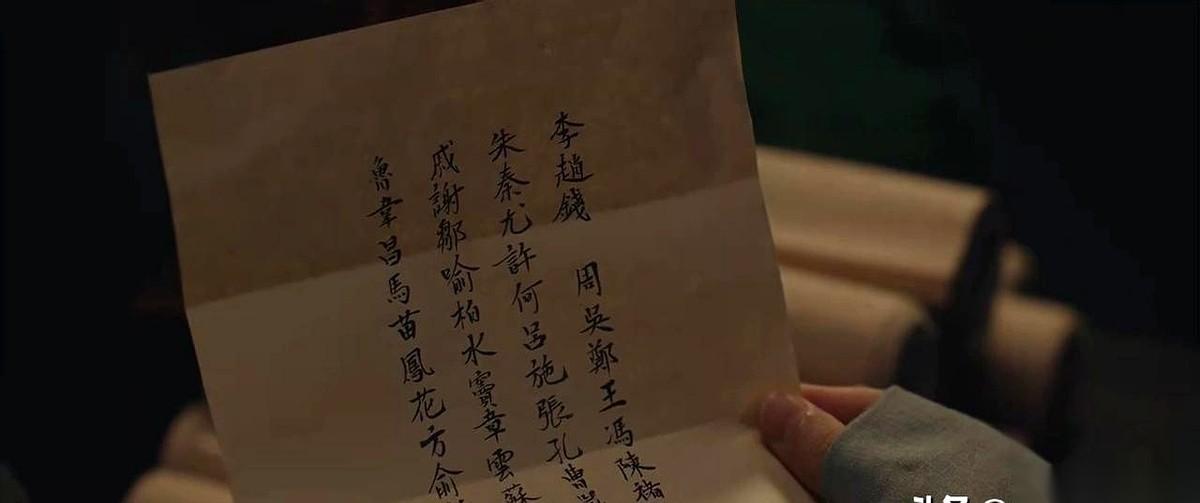 李趙錢　周吳鄭王馮陳褚
朱秦尤許何呂施張孔曹
戚謝鄒喻柏水竇章雲蘇
魯韋昌馬苗鳳花方俞